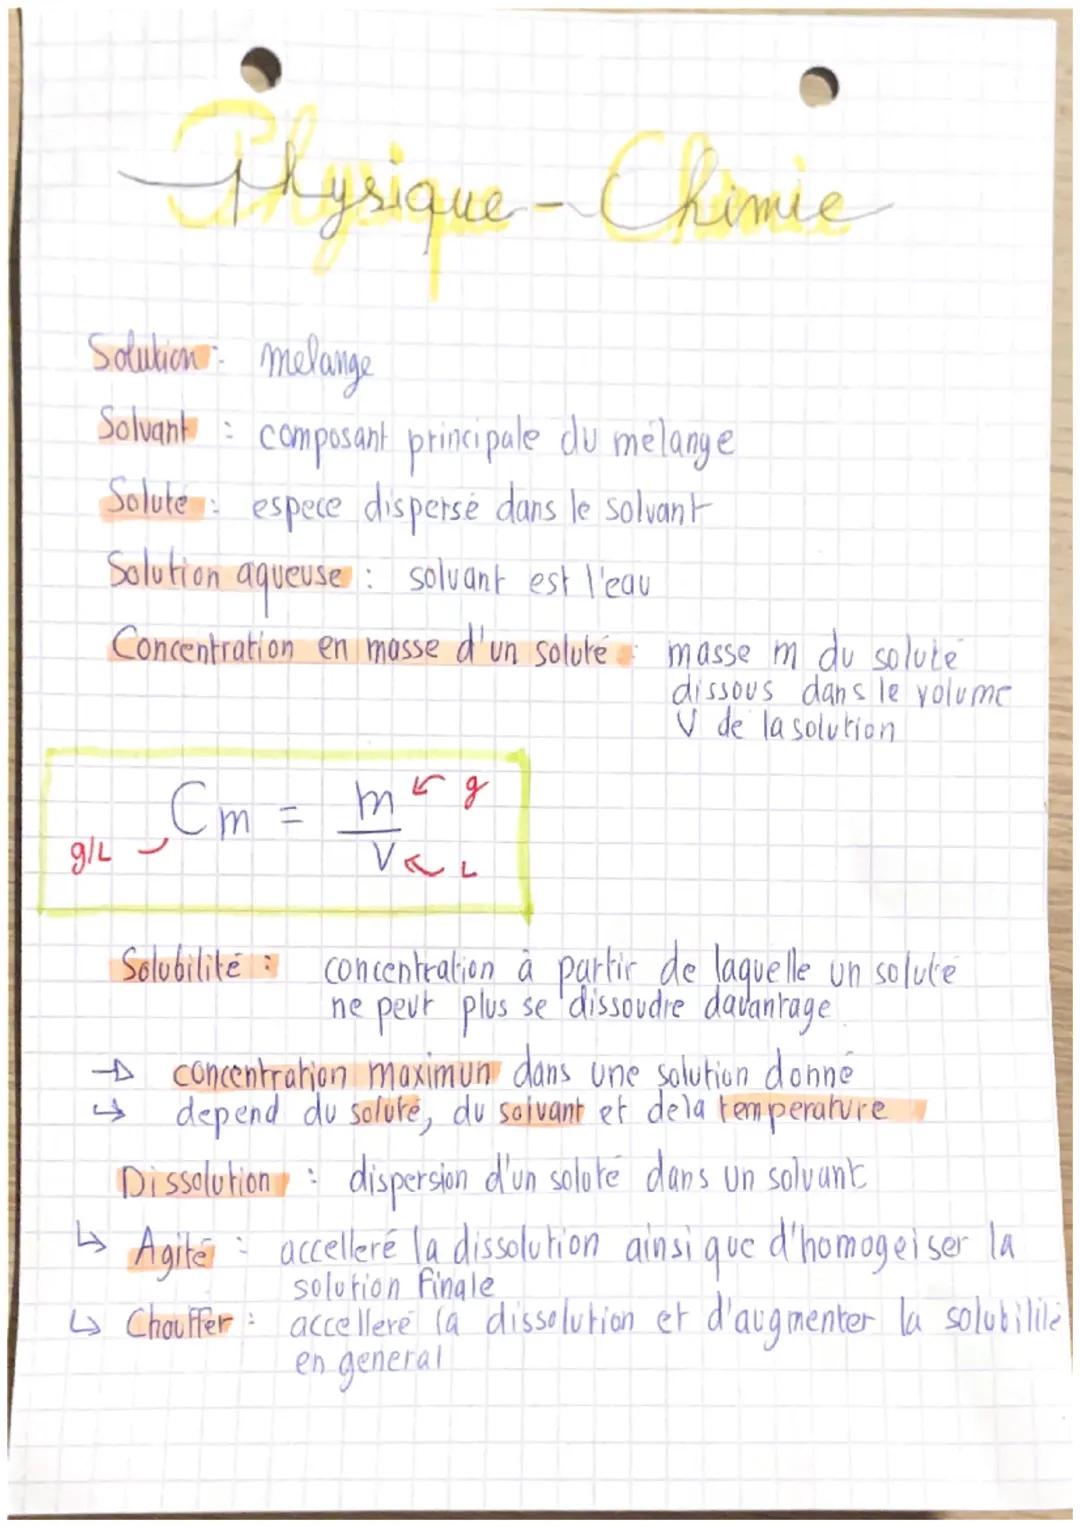 Physique - Chimie
Solution : melange
Solvant : composant principale du mélange
Soluté : espece dispersé dans le solvant
Solution aqueuse : solvant est l'eau
Concentration en masse d'un soluté : masse m du soluté
dissous dans le volume
V de la solution
Cm = m/V
g
g/L
L
Solubilité : concentration à partir de laquelle un soluté
ne peut plus se dissoudre davantage
→ concentration maximun dans une solution donné
↳ depend du soluté, du solvant et de la temperature
Dissolution : dispersion d'un soluté dans un solvant
↳ Agité : accelleré la dissolution ainsi que d'homogeiser la
solution finale
↳ Chauffer : accelleré la dissolution et d'augmenter la solubilité
en general